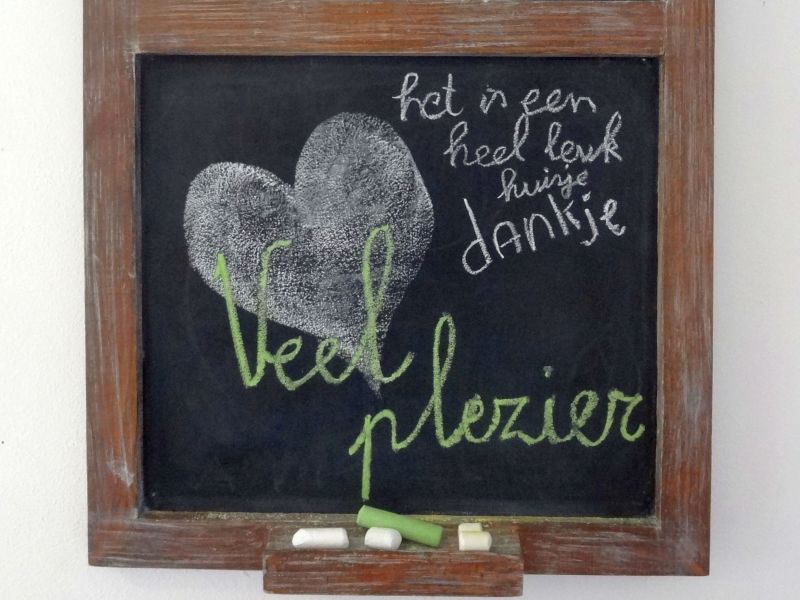 het is een
heel leuk
huisje
dankje
Veel
plezier